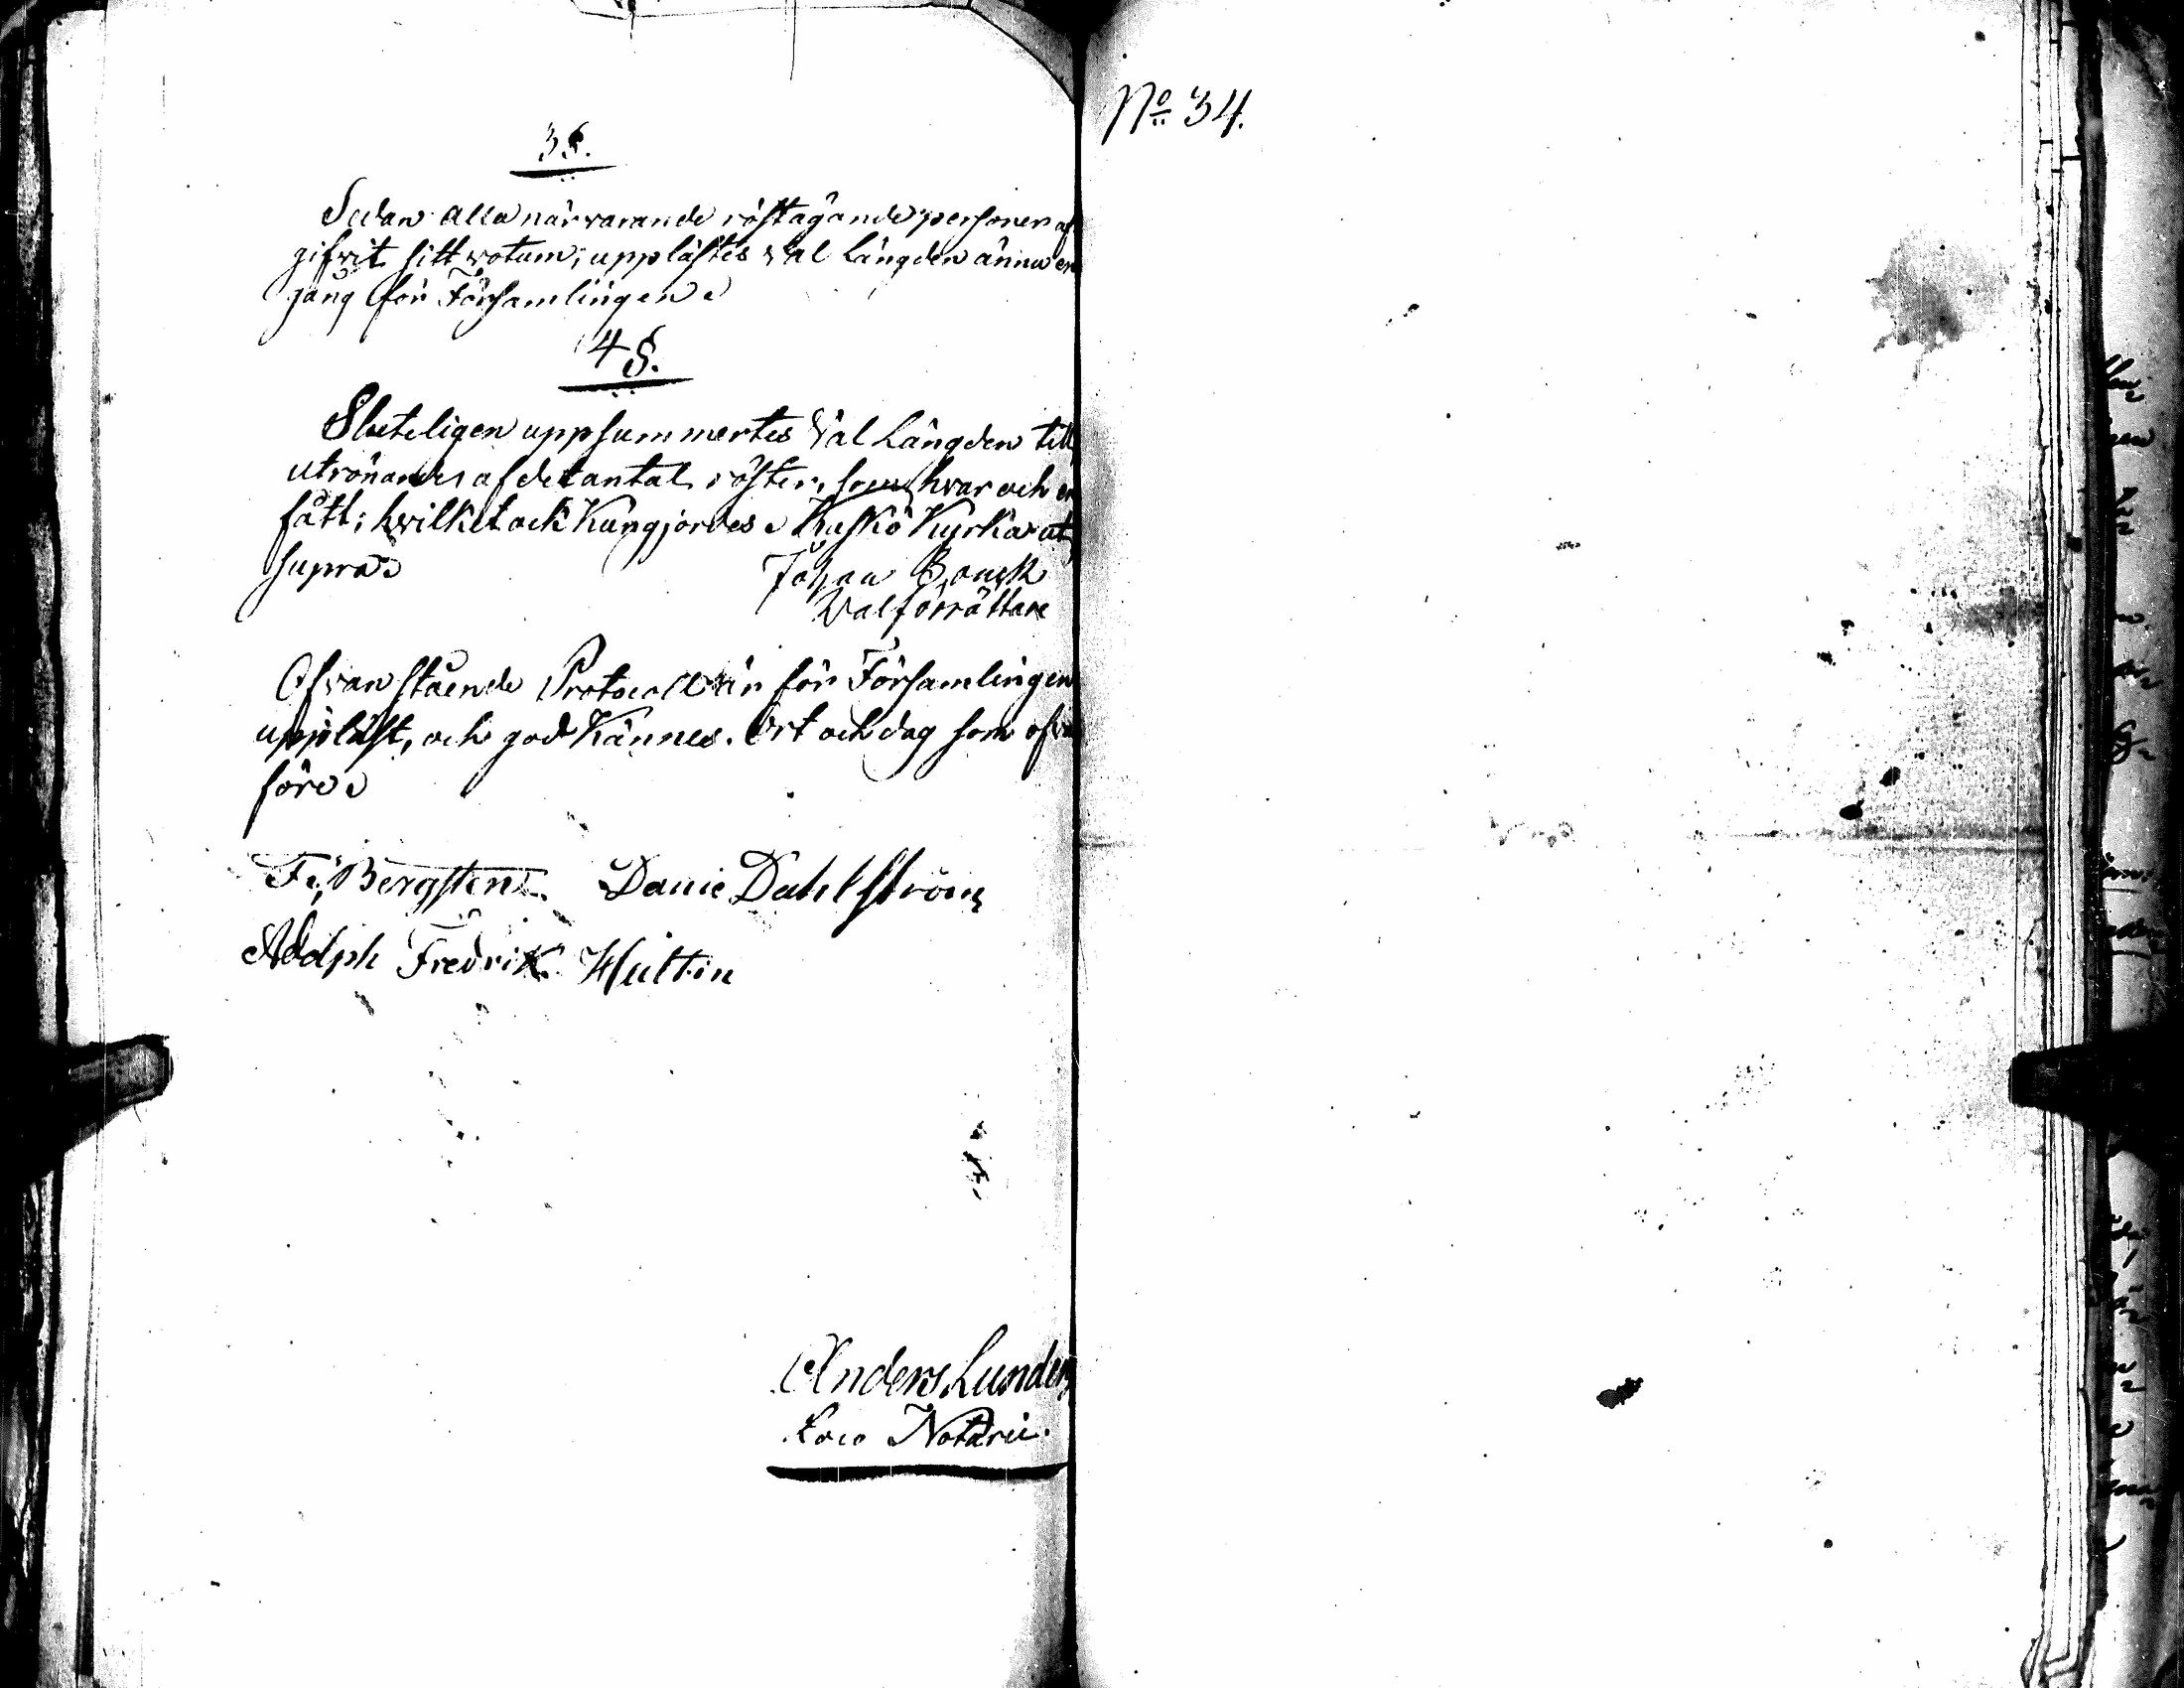 3 §.
Sedan alla närvarande röstägande personer af
gifvit sitt votum, upplästes Val Längden ännu en
gång för Församlingen.
4 §.
Sluteligen uppsummertes Val Längden till
utrönande af det antal röster, som hvar och en
fått; hvilket ock Kungjordes. Kuskö Kyrka ut
supra.
Johan
Valförrättare
Ofvanstående Protocoll är för Församlingen
uppläst, och god Kännes. Ort och dag som ofvan
före.
F. Bergsten. Daniel Dahlström
Adolph Fredrik Hultin
Anders
Loco Notarii.
No 34.